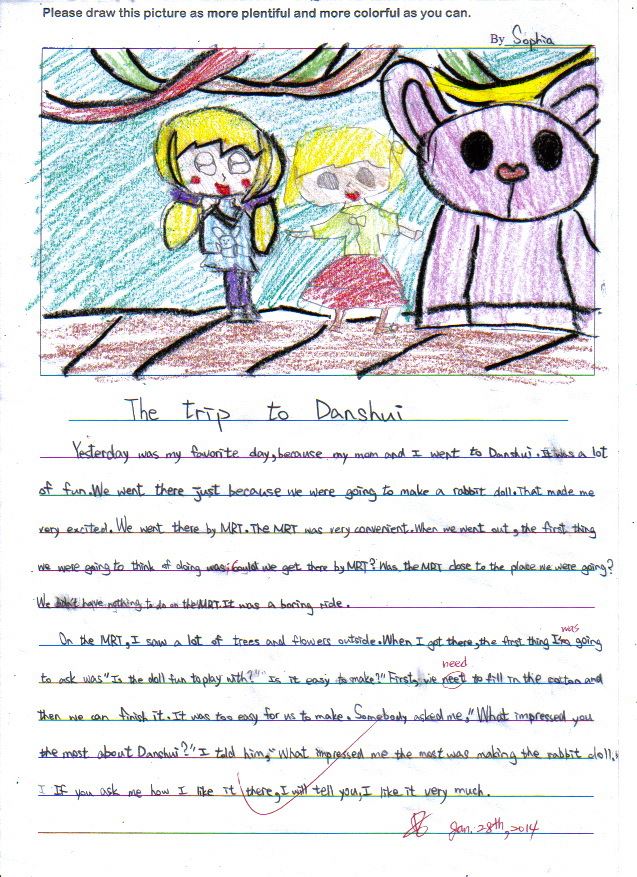 Please draw this picture as more plentiful and more colorful as you can.
By Sophia
The trip to Danshui
Yesterday was my favorite day, because my mom and I went to Danshui. It was a lot
of fun. We went there just because we were going to make a rabbit doll. That made me
very excited. We went there by MRT. The MRT was very convenient. When we went out, the first thing
we were going to think of doing was, Could we get there by MRT? Was the MRT close to the place we were going?
We didn't have nothing to do on the MRT. It was a boring ride.
On the MRT, I saw a lot of trees and flowers outside. When I got there, the first thing I'm going
was
to ask was "Is the doll fun to play with?" "Is it easy to make?" First, we neet to fill in the cotton and
need
then we can finish it. It was too easy for us to make. Somebody asked me, "What impressed you
the most about Danshui?" I told him, "What impressed me the most was making the rabbit doll."
I If you ask me how I like it there, I will tell you, I like it very much.
Jan. 28th, 2014